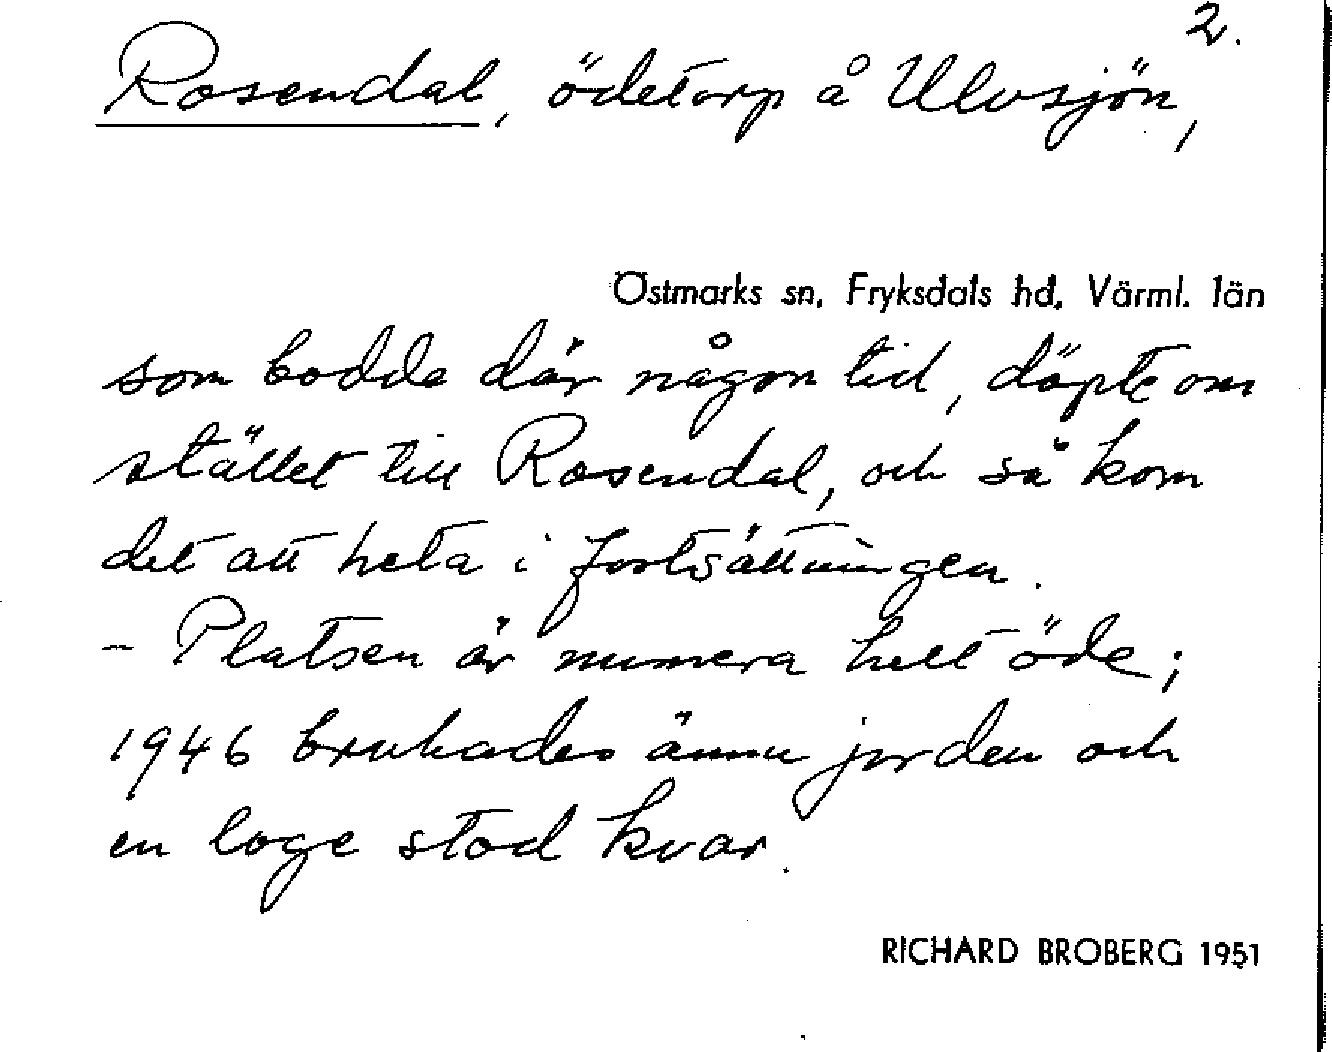 2.
Rosendal, ödetorp å Ulvsjön,
Östmarks sn, Fryksdals hd, Värml. län
som bodde där någon tid, döpte om
stället till Rosendal, och så kom
det att heta i fortsättningen.
- Platsen är numera helt öde;
1946 brukades ännu jorden och
en loge stod kvar.
RICHARD BROBERG 1951